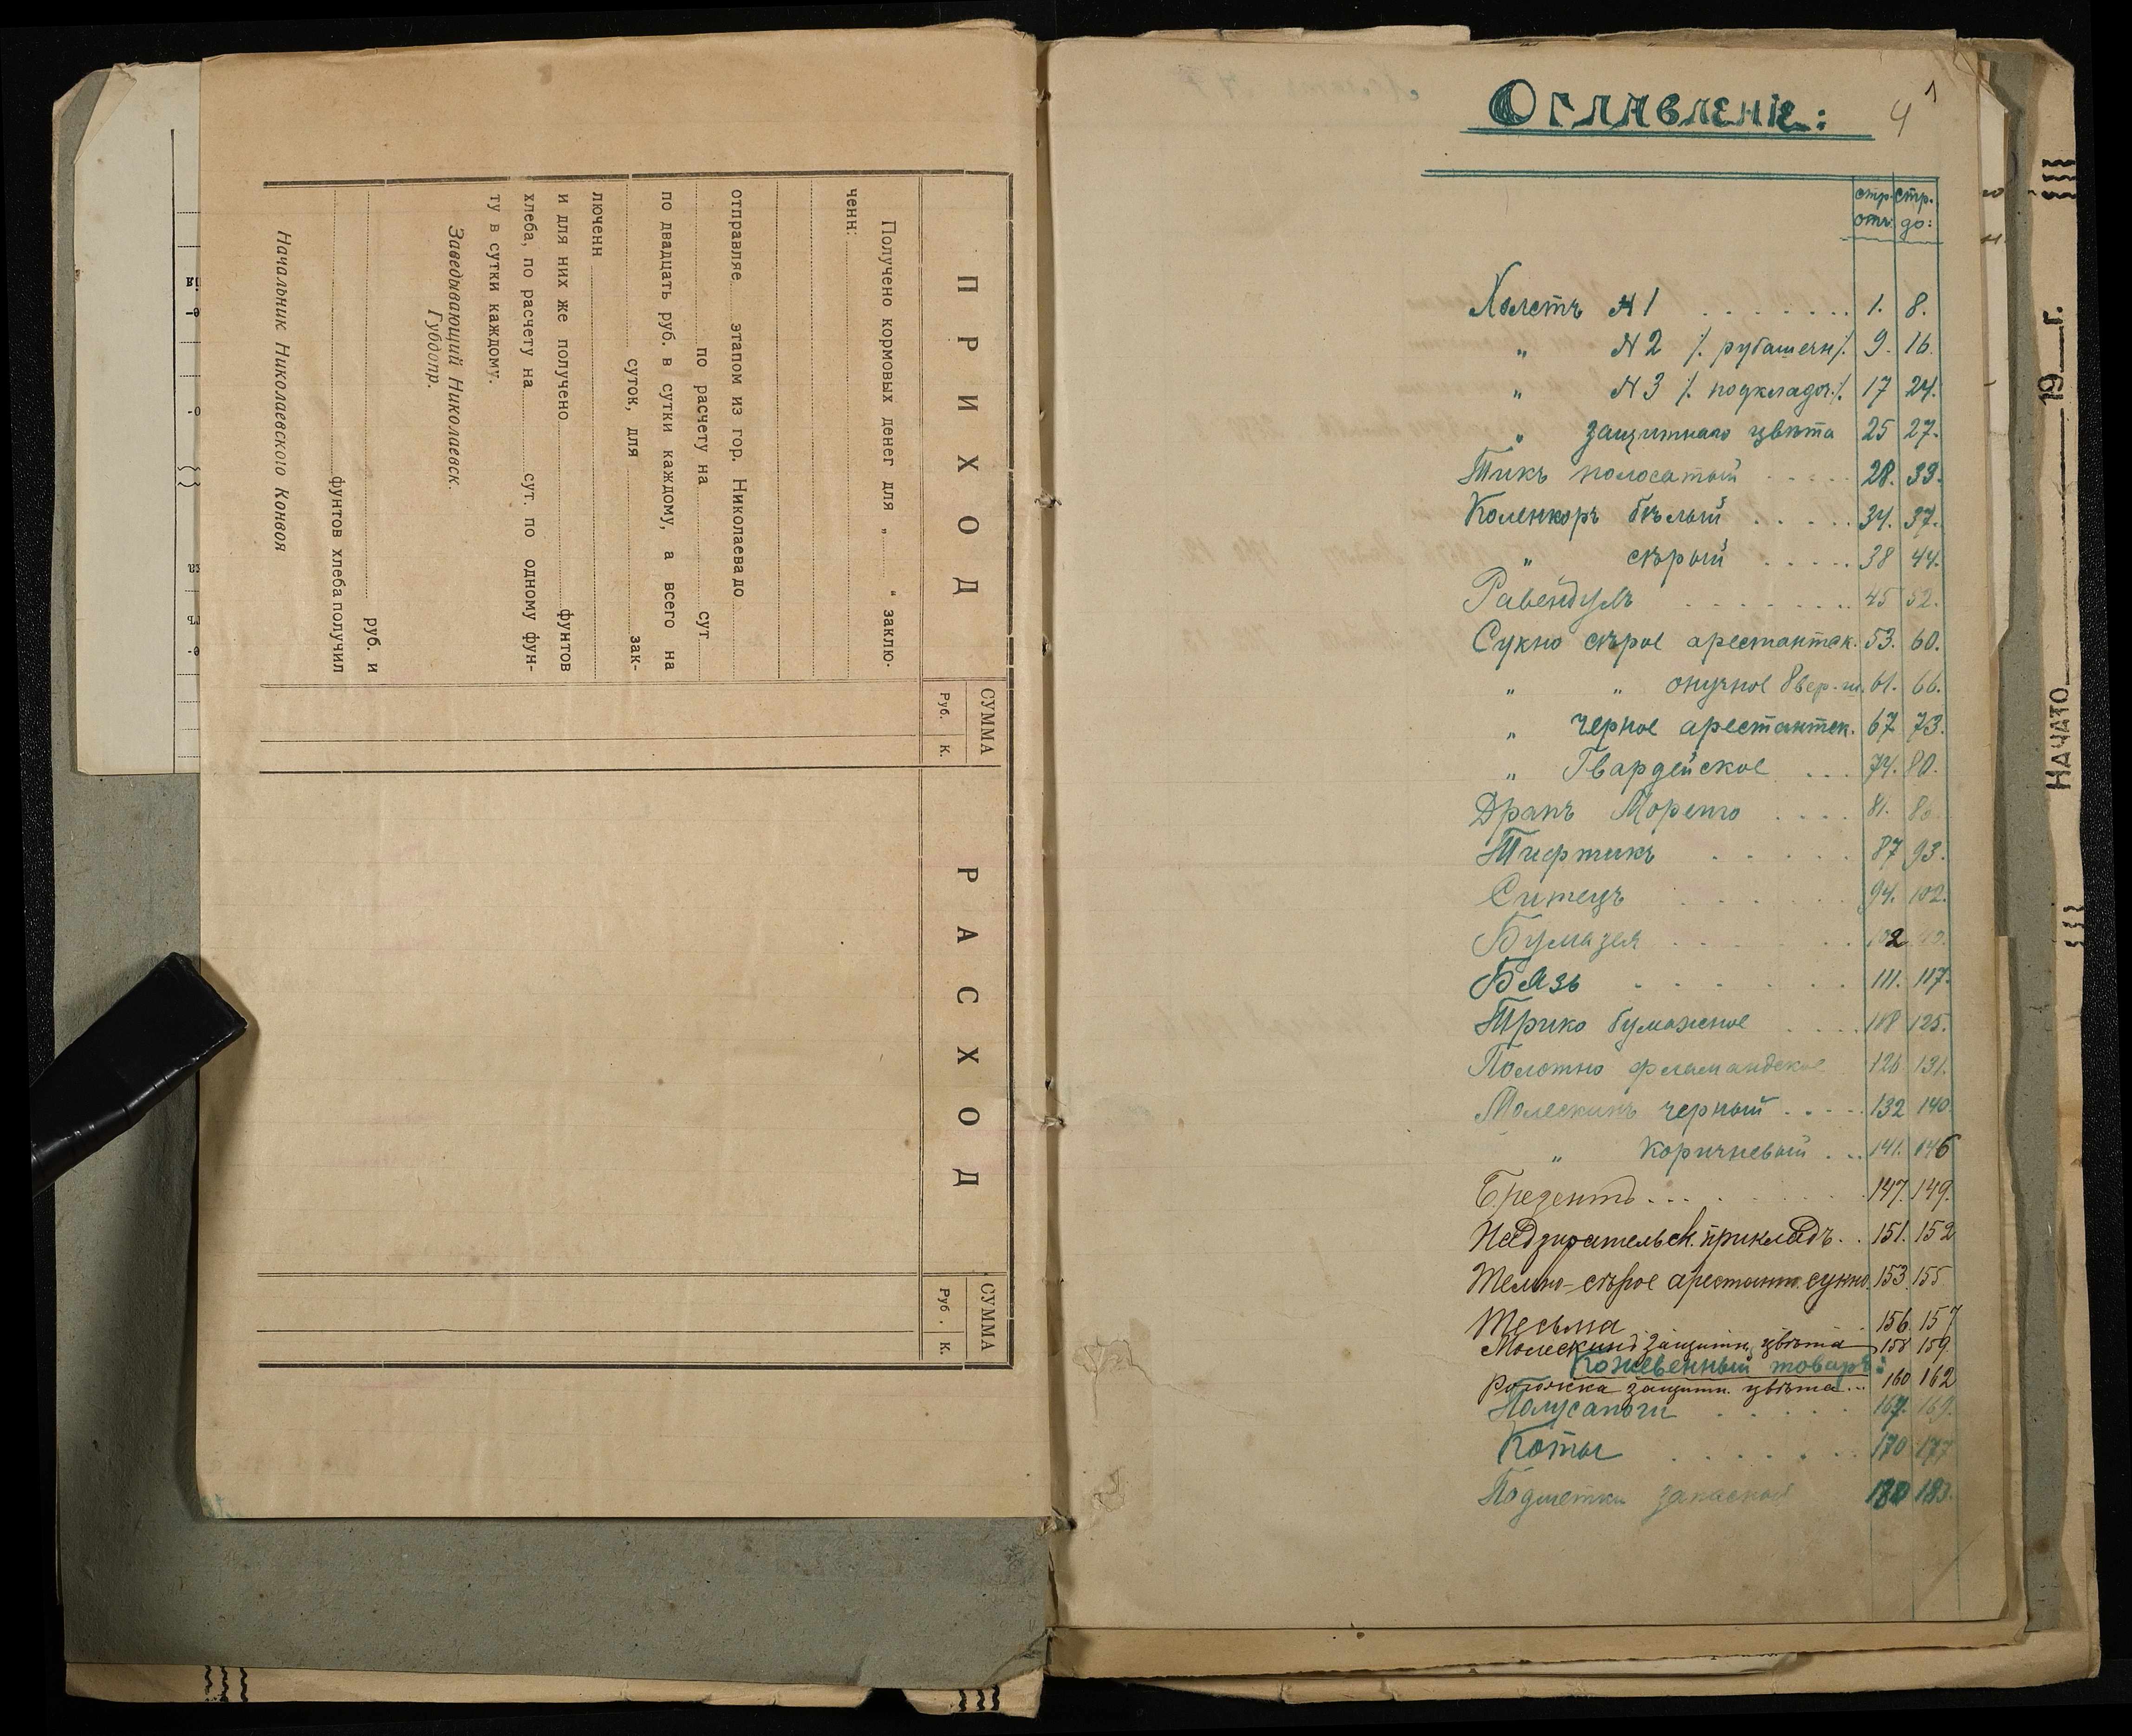 ПРИХОД
СУММА
Руб. К.
Получено кормовых денег для „ “ заклю-
ченн:
отправляе этапом из гор. Николаева до
по расчету на сут
по двадцать руб. в сутки каждому, а всего на
суток, для зак-
люченн
и для них же получено фунтов
хлеба, по расчету на сут. по одному фун-
ту в сутки каждому.
Заведывающий Николаевск.
Губдопр.
руб. и
фунтов хлеба получил
Начальник Николаевского Конвоя
РАСХОД
СУММА
Руб. К.
Оглавленіе:
4 1
стр. отъ: стр. до:
Холстъ № 1 . . . . . . . 1. 8.
„ № 2 ∕. рубашечн∕. 9. 16.
„ № 3 ∕. подкладоч.∕. 17 24.
„ защитнаго цвѣта 25 27.
Тикъ полосатый . . . . 28. 33.
Коленкоръ бѣлый . . . . . 34. 37.
„ сѣрый . . . . . 38 44.
Равендукъ . . . . . . . . 45 52.
Сукно сѣрое арестантск. 53. 60.
„ „ онучное 8 вер. ш. 61. 66.
„ черное арестантск. 67 73.
„ Гвардейское . . . 74. 80.
Драпъ Моренго . . . . 81. 86
Тифтикъ . . . . . 87 93.
Ситецъ . . . . . . 94. 102.
Бумазея . . . . . . . 102
Бязь . . . . . . 111. 117.
Трико бумажное . . . . 118 125.
Полотно фламандское 126 131.
Молескинъ черный . . . . 132 140.
„ Коричневый . . . 141. 146
Брезентъ . . . . 147. 149.
Надзирательск. прикладъ . . 151. 152
Темно-сѣрое арестант. сукно. 153. 155
Тесьма . 156. 157
Молескинъ защитн. цвѣта 158 159.
Кожевенный товаръ:
Рогожка защитн. цвѣта . . . 160 162
Полусапоги . . . . . 167. 169.
Коты . . . . . . . 170 177
Подметки запасной 180 183.
НАЧАТО 19 г.